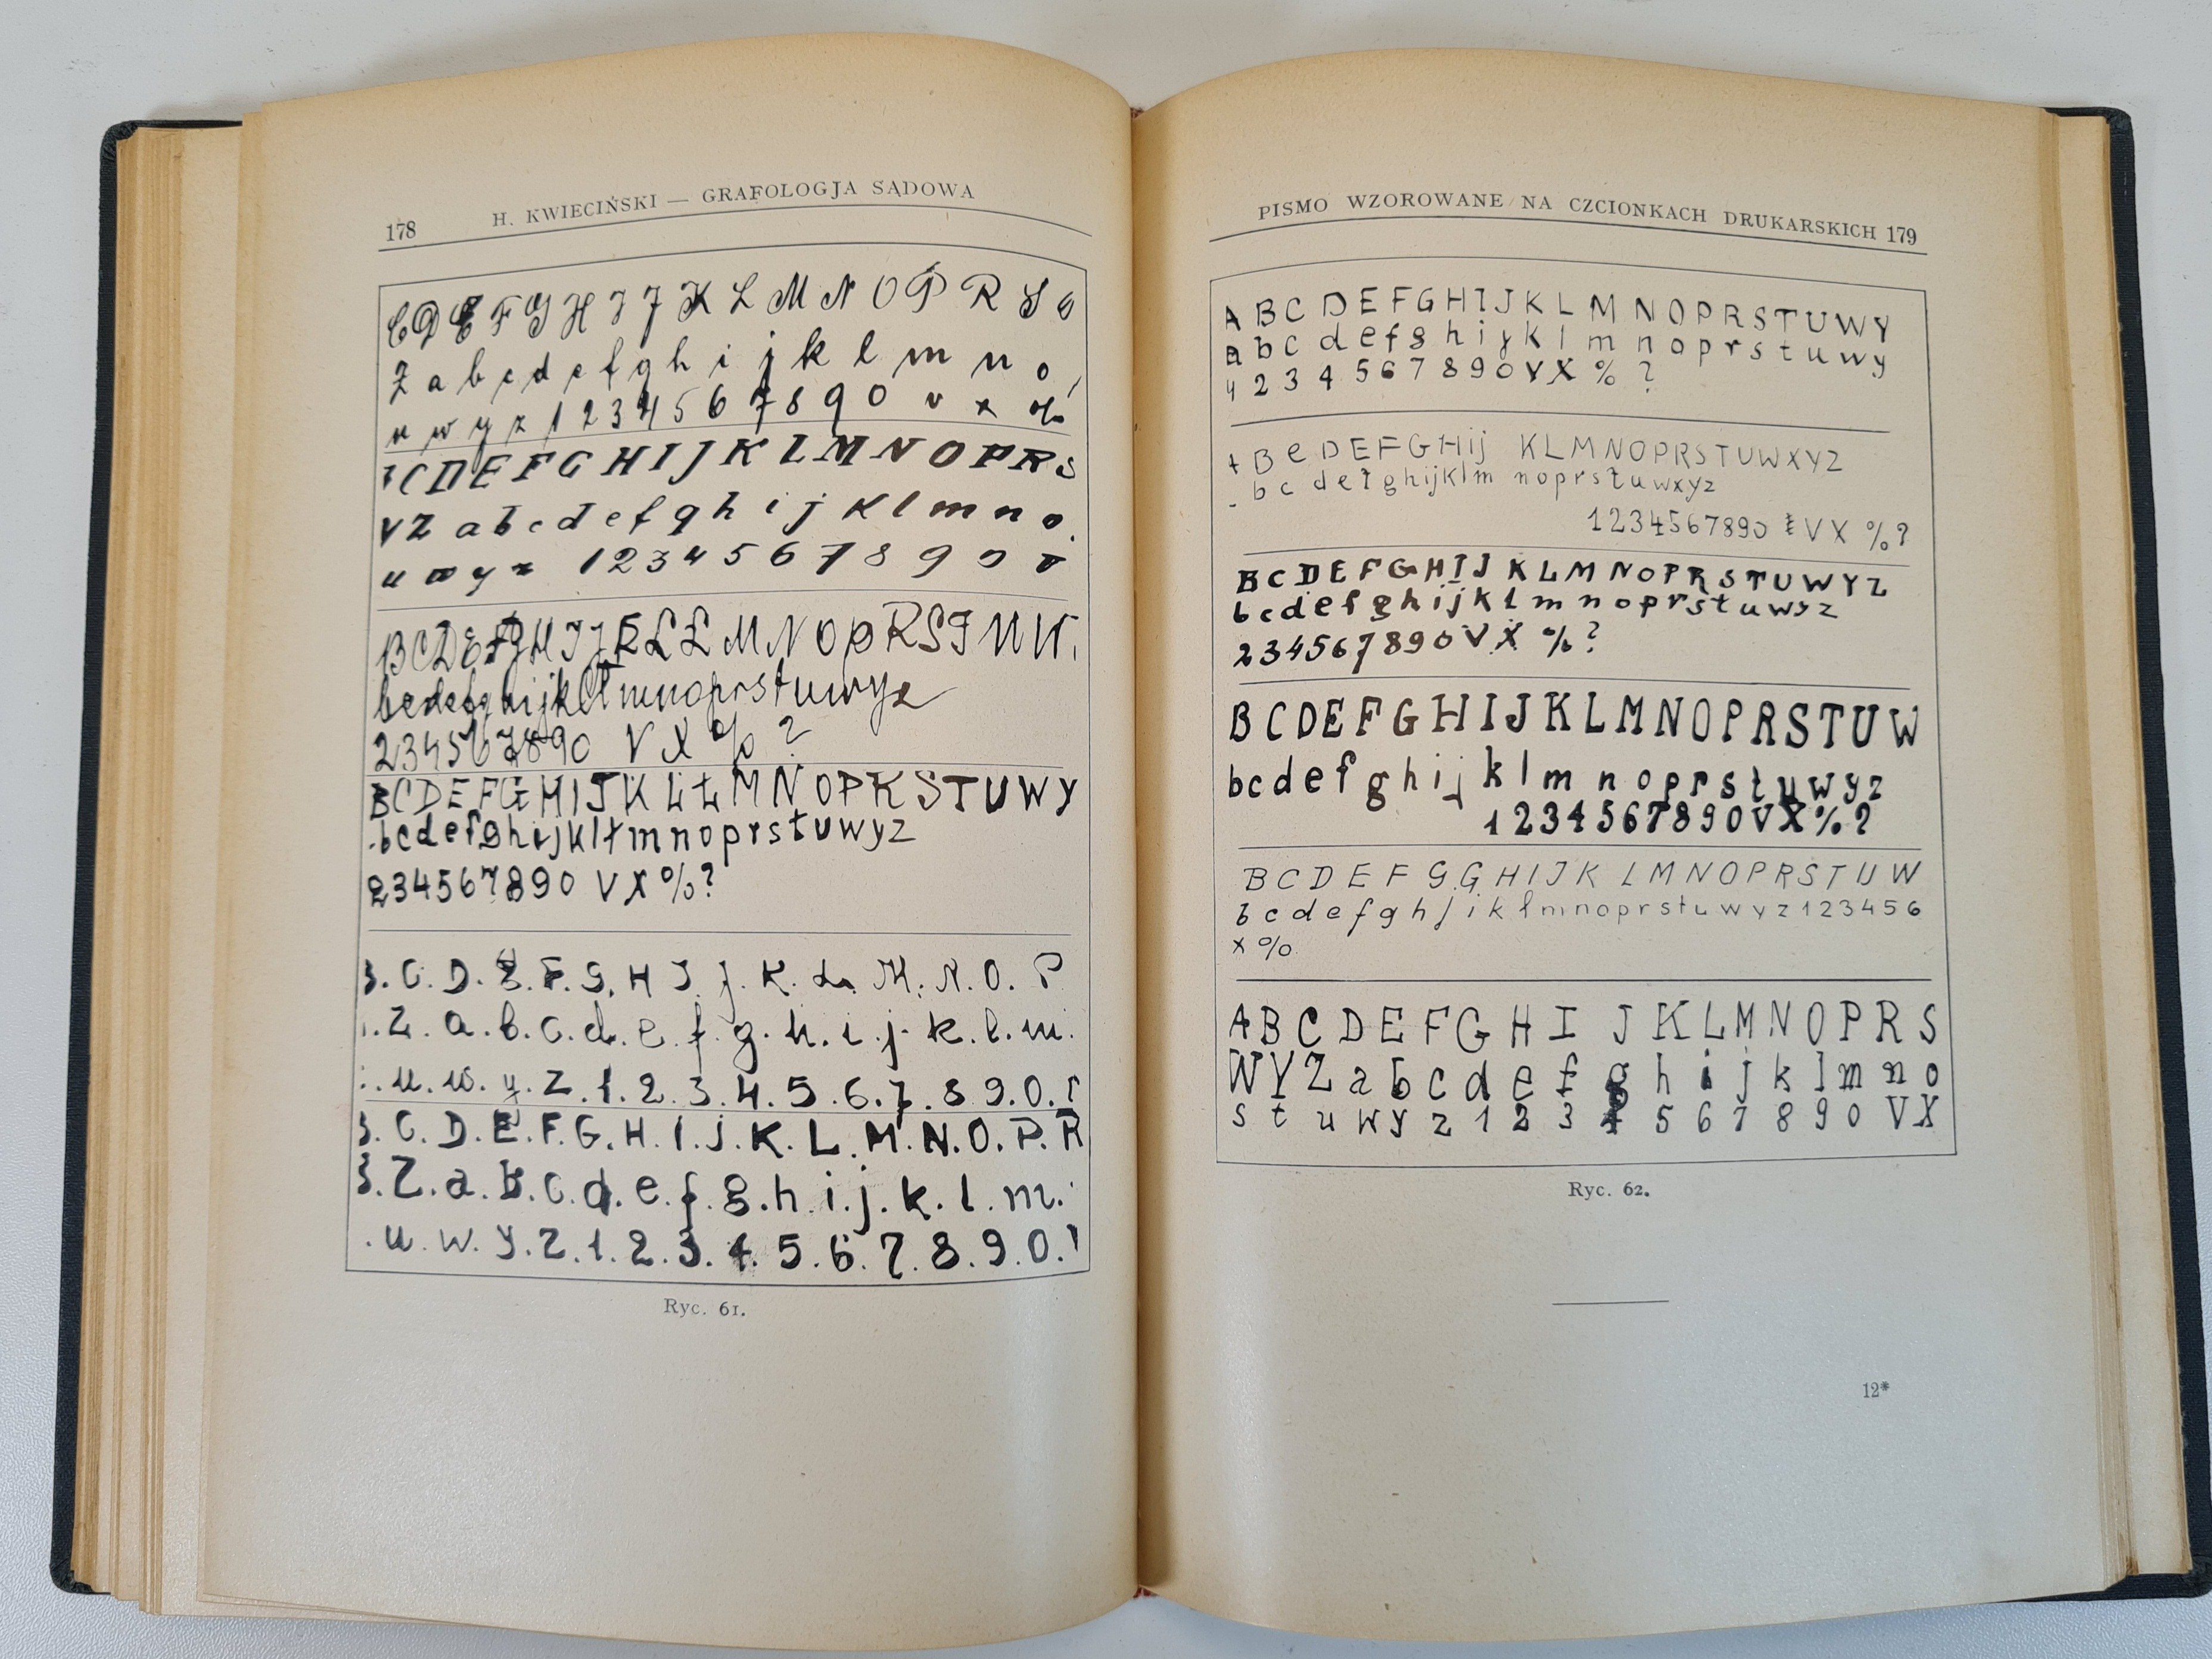 178 H. KWIECIŃSKI — GRAFOLOGJA SĄDOWA
C D E F G H I J K L M N O P R S
Z a b c d e f g h i j k l m n o
u w y z 1 2 3 4 5 6 7 8 9 0 v x %
C D E F G H I J K L M N O P R S
Y Z a b c d e f g h i j k l m n o
u w y z 1 2 3 4 5 6 7 8 9 0 v
B C D E F G H I J K L Ł M N O P R S T U W
b c d e f g h i j k l ł m n o p r s t u w y z
2 3 4 5 6 7 8 9 0 V X % ?
B C D E F G H I J K L Ł M N O P R S T U W Y
b c d e f g h i j k l ł m n o p r s t u w y z
2 3 4 5 6 7 8 9 0 V X % ?
B. C. D. E. F. G. H I. J. K. L. M. N. O. P
. Z. a. b. c. d. e. f. g. h. i. j. k. l. m.
. u. w. y. Z. 1. 2. 3. 4. 5. 6. 7. 8 9. 0.
B. C. D. E. F. G. H. I. J. K. L. M. N. O. P. R
Z. a. b. c. d. e. f. g. h i. j. k. l. m.
. u. w. y. z. 1. 2. 3. 4. 5. 6. 7. 8. 9. 0.
Ryc. 61.
PISMO WZOROWANE NA CZCIONKACH DRUKARSKICH 179
A B C D E F G H I J K L M N O P R S T U W Y
a b c d e f g h i j k l m n o p r s t u w y
2 3 4 5 6 7 8 9 0 V X % ?
B C D E F G H i j K L M N O P R S T U W X Y Z
b c d e f g h i j k l m n o p r s t u w x y z
1 2 3 4 5 6 7 8 9 0 V X % ?
B C D E F G H I J K L M N O P R S T U W Y Z
b c d e f g h i j k l m n o p r s t u w y z
2 3 4 5 6 7 8 9 0 V X % ?
B C D E F G H I J K L M N O P R S T U W
b c d e f g h i j k l m n o p r s t u w y z
1 2 3 4 5 6 7 8 9 0 V X % ?
B C D E F G G H I J K L M N O P R S T U W
b c d e f g h j i k l m n o p r s t u w y z 1 2 3 4 5 6
x %
A B C D E F G H I J K L M N O P R S
W Y Z a b c d e f g h i j k l m n o
s t u w y z 1 2 3 4 5 6 7 8 9 0 V X
Ryc. 62.
12*